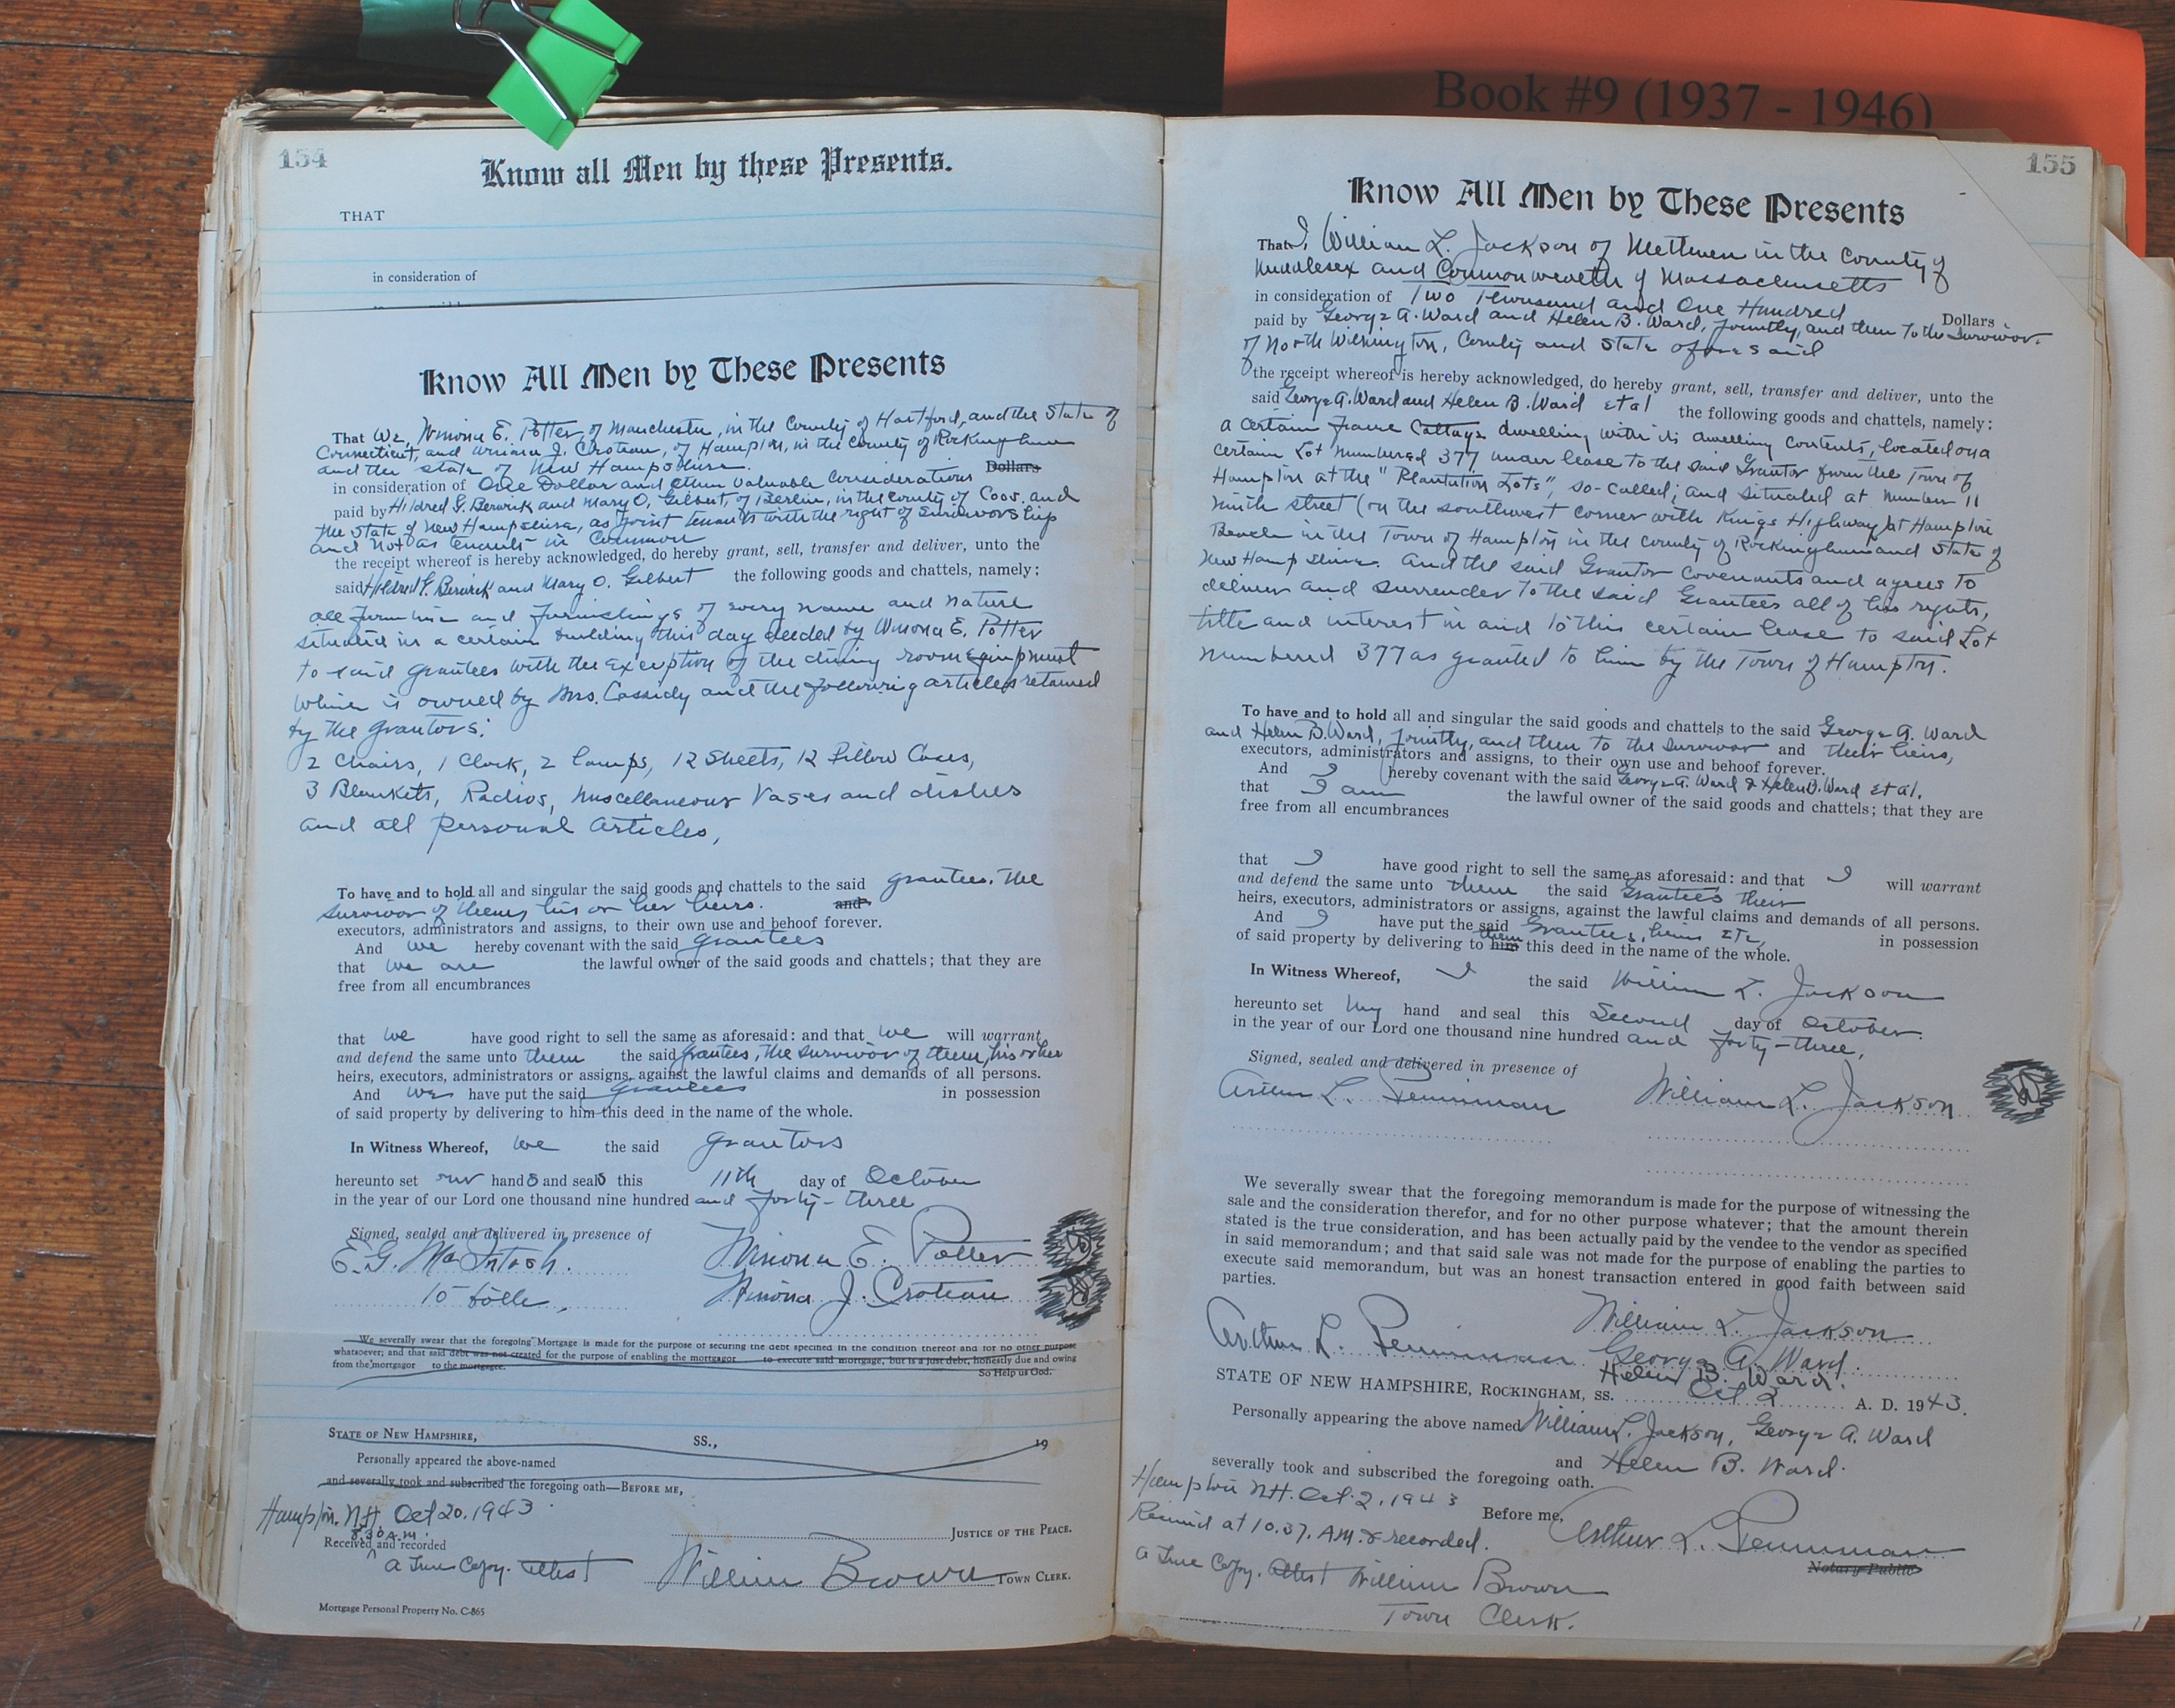 Book #9 (1937 - 1946)
154
Know all Men by these Presents.
THAT
in consideration of
Know All Men by These Presents
That We, Winona E. Potter, of Manchester, in the County of Hartford, and the State of
Connecticut, and Winona J. Croteau, of Hampton, in the County of Rockingham
and the State of New Hampshire.
Dollars
in consideration of One Dollar and other valuable Considerations
paid by Hildred G. Berwick and Mary O. Gilbert, of Berlin, in the County of Coos, and
the State of New Hampshire, as joint tenants with the right of survivorship
and not as tenants in Common
the receipt whereof is hereby acknowledged, do hereby grant, sell, transfer and deliver, unto the
said Hildred G. Berwick and Mary O. Gilbert the following goods and chattels, namely:
all furniture and furnishings of every name and nature
situated in a certain building this day deeded by Winona E. Potter
to said grantees with the exception of the dining room equipment
which is owned by Mrs. Cassidy and the following articles retained
by the grantors:
2 Chairs, 1 Clock, 2 Lamps, 12 Sheets, 12 Pillow Cases,
3 Blankets, Radios, Miscellaneous Vases and dishes
and all personal articles,
To have and to hold all and singular the said goods and chattels to the said grantees. The
survivor of them, his or her heirs. and
executors, administrators and assigns, to their own use and behoof forever.
And we hereby covenant with the said grantees
that we are the lawful owner of the said goods and chattels; that they are
free from all encumbrances
that we have good right to sell the same as aforesaid: and that we will warrant
and defend the same unto them the said grantees, the survivor of them, his or her
heirs, executors, administrators or assigns, against the lawful claims and demands of all persons.
And we have put the said grantees in possession
of said property by delivering to him this deed in the name of the whole.
In Witness Whereof, we the said grantors
hereunto set our hands and seals this 11th day of October
in the year of our Lord one thousand nine hundred and forty-three
Signed, sealed and delivered in presence of
E. G. MacIntosh. Winona E. Potter
to both. Winona J. Croteau
We severally swear that the foregoing Mortgage is made for the purpose of securing the debt specified in the condition thereof and for no other purpose
whatsoever; and that said debt was not created for the purpose of enabling the mortgagor to execute said mortgage, but is a just debt, honestly due and owing
from the mortgagor to the mortgagee.
So Help us God.
STATE OF NEW HAMPSHIRE, SS., 19
Personally appeared the above-named
and severally took and subscribed the foregoing oath—BEFORE ME,
Hampton. N.H. Oct 20. 1943
8.30 A.M.
JUSTICE OF THE PEACE.
Received and recorded
a True Copy. Attest William Brown TOWN CLERK.
Mortgage Personal Property No. C-865
155
Know All Men by These Presents
That I, William L. Jackson of Methuen in the County of
Middlesex and Commonwealth of Massachusetts
in consideration of Two Thousand and One Hundred Dollars
paid by George A. Ward and Helen B. Ward, jointly, and then to the Survivor
of North Wilmington, County and State aforesaid
the receipt whereof is hereby acknowledged, do hereby grant, sell, transfer and deliver, unto the
said George A. Ward and Helen B. Ward et al the following goods and chattels, namely:
a certain frame Cottage dwelling with its dwelling contents, located on a
certain Lot numbered 377 under lease to the said Grantor from the Town of
Hampton at the "Plantation Lots", so-called; and situated at number 11
Ninth street (on the southwest corner with Kings Highway) at Hampton
Beach in the Town of Hampton in the County of Rockingham and State of
New Hampshire. And the said Grantor covenants and agrees to
deliver and surrender to the said Grantees all of his rights,
title and interest in and to this certain lease to said Lot
numbered 377 as granted to him by the Town of Hampton.
To have and to hold all and singular the said goods and chattels to the said George A. Ward
and Helen B. Ward, jointly, and then to the survivor and their heirs,
executors, administrators and assigns, to their own use and behoof forever.
And I hereby covenant with the said George A. Ward & Helen B. Ward et al.
that I am the lawful owner of the said goods and chattels; that they are
free from all encumbrances
that I have good right to sell the same as aforesaid: and that I will warrant
and defend the same unto them the said Grantees their
heirs, executors, administrators or assigns, against the lawful claims and demands of all persons.
And I have put the said Grantees, heirs etc, in possession
of said property by delivering to him them this deed in the name of the whole.
In Witness Whereof, I the said William L. Jackson
hereunto set my hand and seal this Second day of October.
in the year of our Lord one thousand nine hundred and forty-three.
Signed, sealed and delivered in presence of
Arthur L. Penniman William L. Jackson
We severally swear that the foregoing memorandum is made for the purpose of witnessing the
sale and the consideration therefor, and for no other purpose whatever; that the amount therein
stated is the true consideration, and has been actually paid by the vendee to the vendor as specified
in said memorandum; and that said sale was not made for the purpose of enabling the parties to
execute said memorandum, but was an honest transaction entered in good faith between said
parties.
William L. Jackson
Arthur L. Penniman George A. Ward.
Helen B. Ward.
STATE OF NEW HAMPSHIRE, ROCKINGHAM, SS. Oct 2 A. D. 1943.
Personally appearing the above named William L. Jackson, George A. Ward
and Helen B. Ward.
severally took and subscribed the foregoing oath.
Hampton N.H. Oct. 2. 1943 Before me,
Received at 10.37. A.M. & recorded. Arthur L. Penniman
Notary Public
a True Copy. Attest William Brown
Town Clerk.